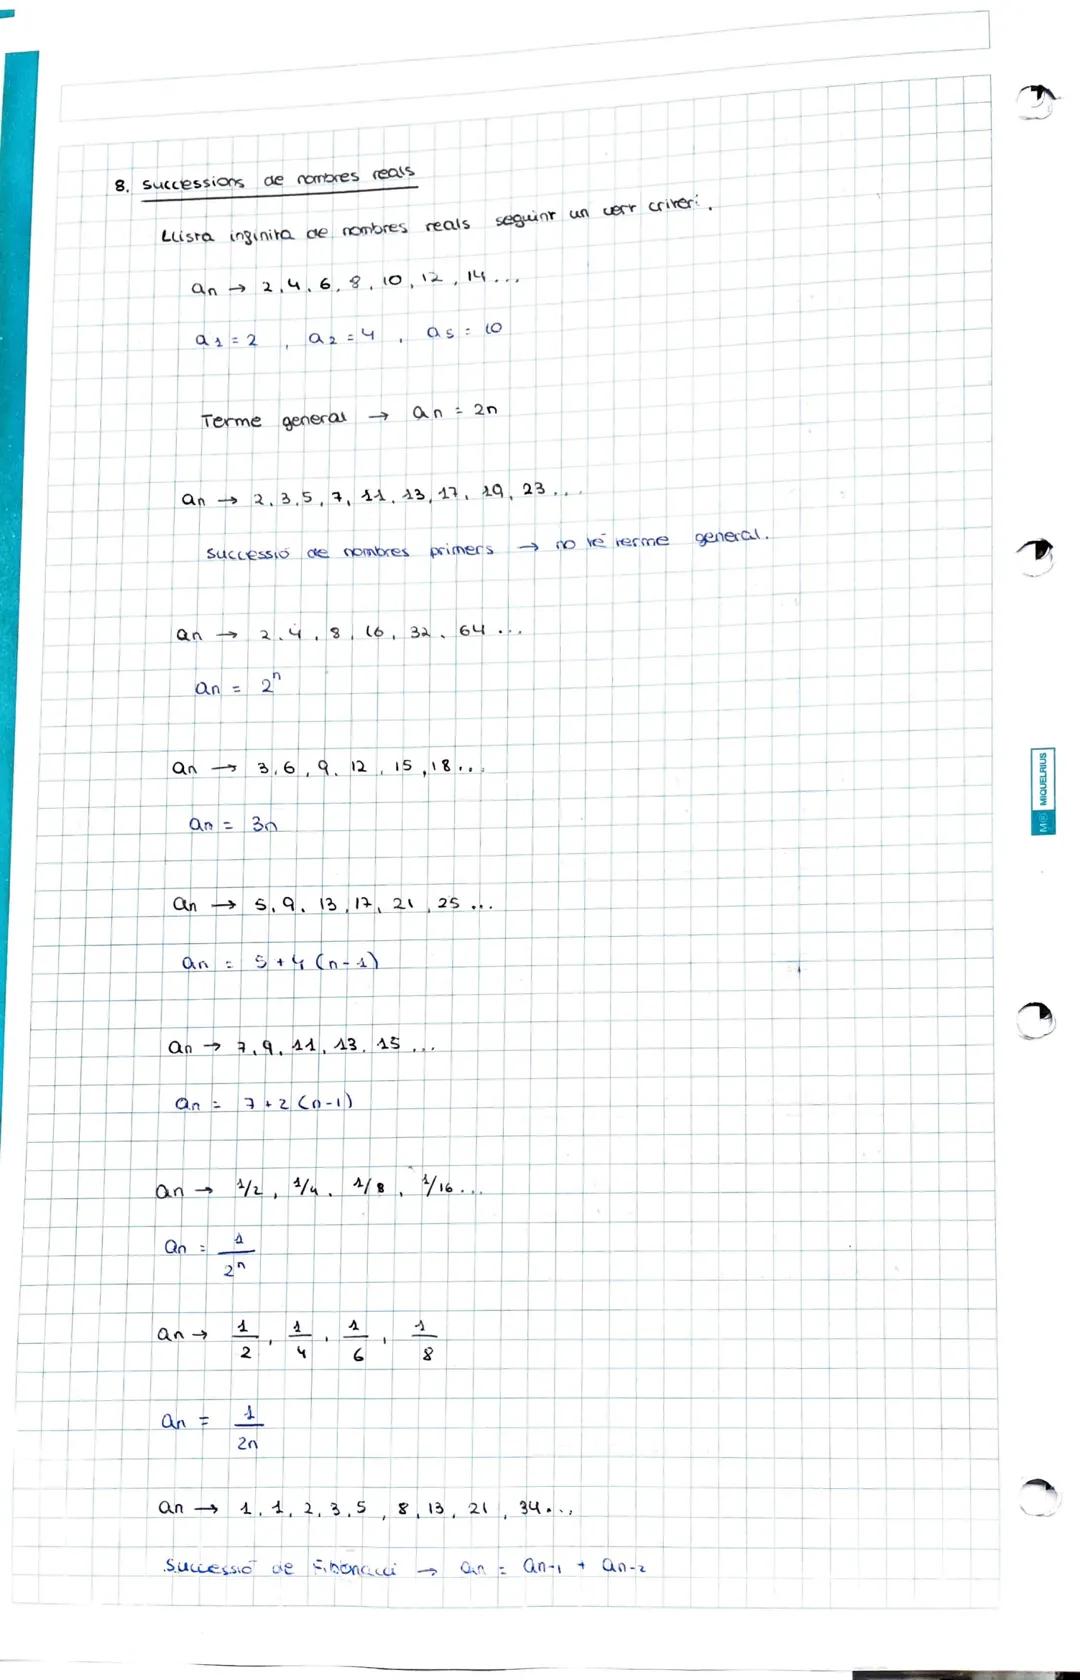 8. Successions de nombres reals
Llista infinita de nombres reals seguint un cert criteri.
an → 2, 4, 6, 8, 10, 12, 14...
a1 = 2, a2 = 4, a5 = 10
Terme general → an = 2n
an → 2, 3, 5, 7, 11, 13, 17, 19, 23...
Successió de nombres primers → no té terme general.
an → 2, 4, 8, 16, 32, 64...
an = 2^n
an → 3, 6, 9, 12, 15, 18...
an = 3n
an → 5, 9, 13, 17, 21, 25...
an = 5 + 4 (n-1)
an → 7, 9, 11, 13, 15...
an = 7 + 2 (n-1)
an → 1/2, 1/4, 1/8, 1/16...
an = 1/2^n
an → 1/2, 1/4, 1/6, 1/8
an = 1/2n
an → 1, 1, 2, 3, 5, 8, 13, 21, 34...
Successió de Fibonacci → an = an-1 + an-2
MIQUELRIUS